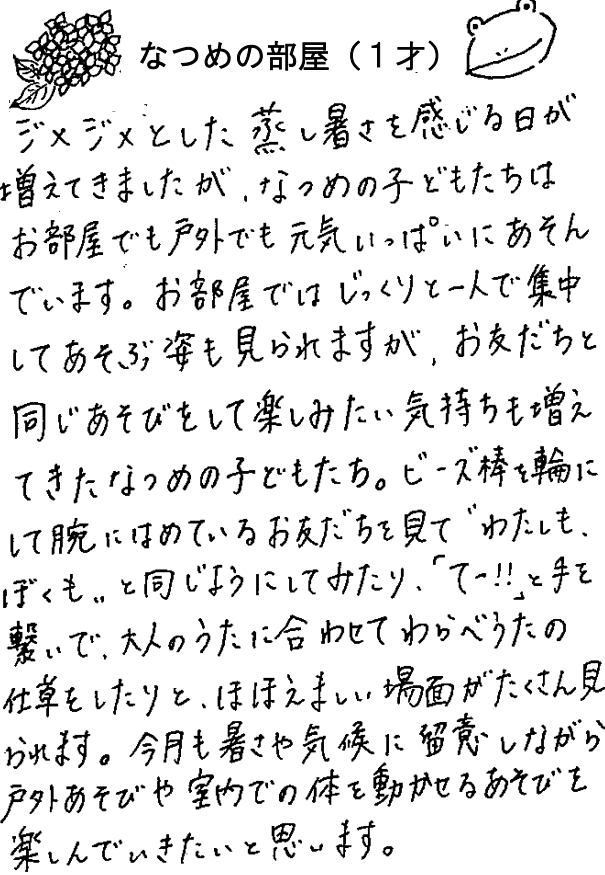 なつめの部屋（１才）
ジメジメとした蒸し暑さを感じる日が
増えてきましたが、なつめの子どもたちは
お部屋でも戸外でも元気いっぱいにあそん
でいます。お部屋ではじっくりと一人で集中
してあそぶ姿も見られますが、お友だちと
同じあそびをして楽しみたい気持ちも増え
てきたなつめの子どもたち。ビーズ棒を輪に
して腕にはめているお友だちを見て〝わたしも、
ぼくも〟と同じようにしてみたり、「てー!!」と手を
繋いで、大人のうたに合わせてわらべうたの
仕草をしたりと、ほほえましい場面がたくさん見
られます。今月も暑さや気候に留意しながら
戸外あそびや室内での体を動かせるあそびを
楽しんでいきたいと思います。